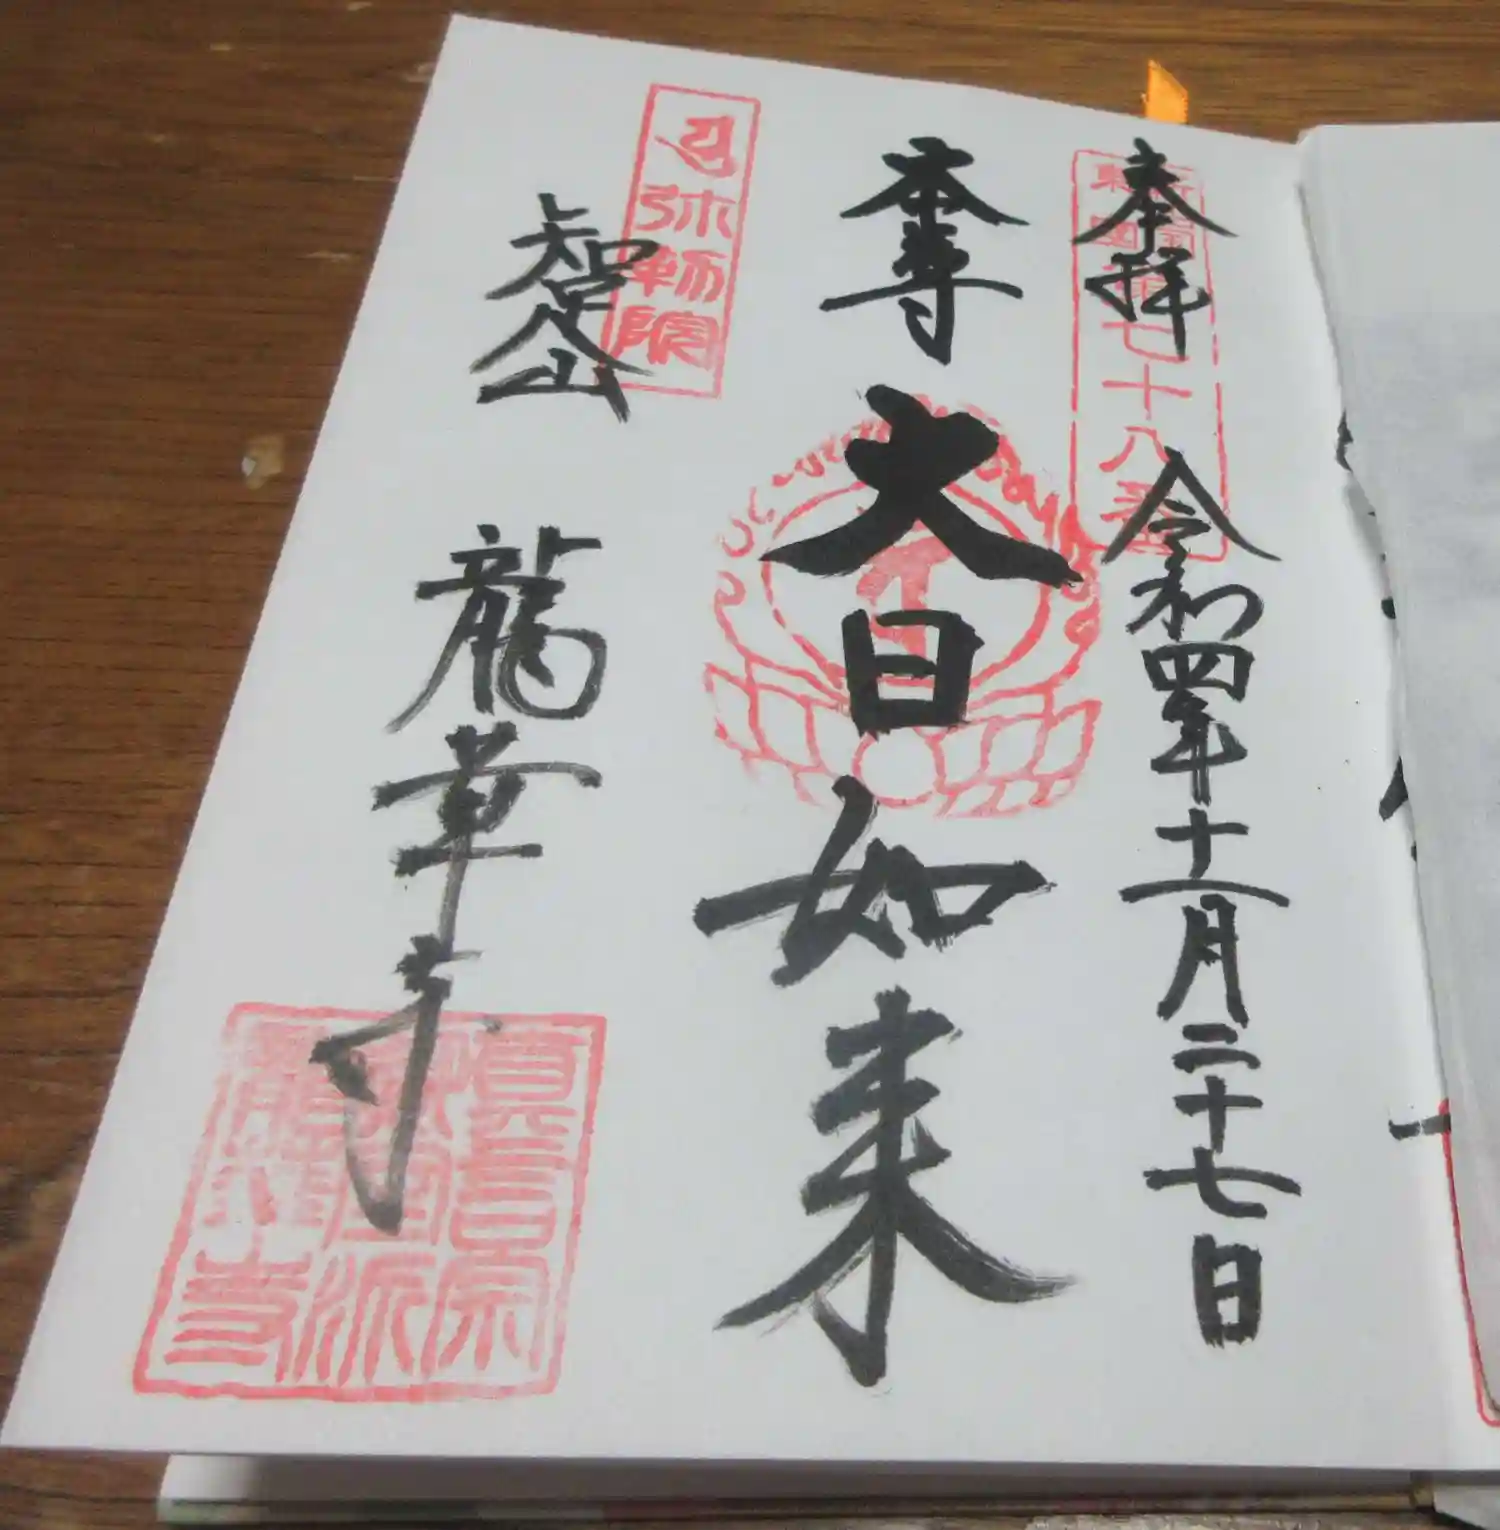 奉拝
令和四年十一月二十七日
七十八
本尊
大日如来
弥勒院
智足山
龍華寺
真言宗
派
寺